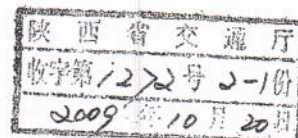 陕西省交通厅
收字第1272号 2-1份
2009年10月20日